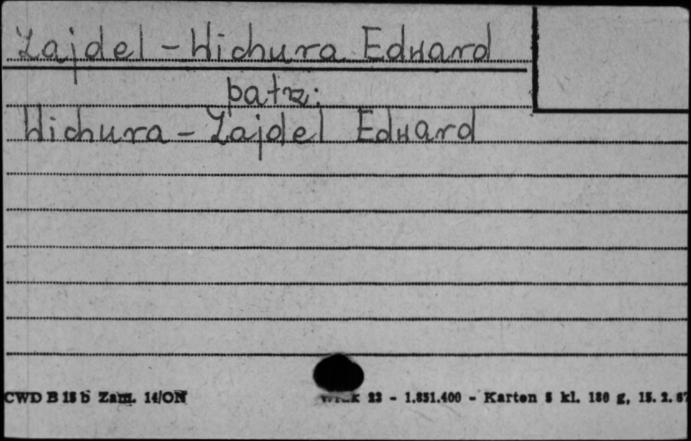 Zajdel - Wichura Edward
patrz:
Wichura - Zajdel Edward
CWD B 15 b Zam. 14/ON
23 - 1.851.400 - Karton 5 kl. 180 g, 15. 2. 67